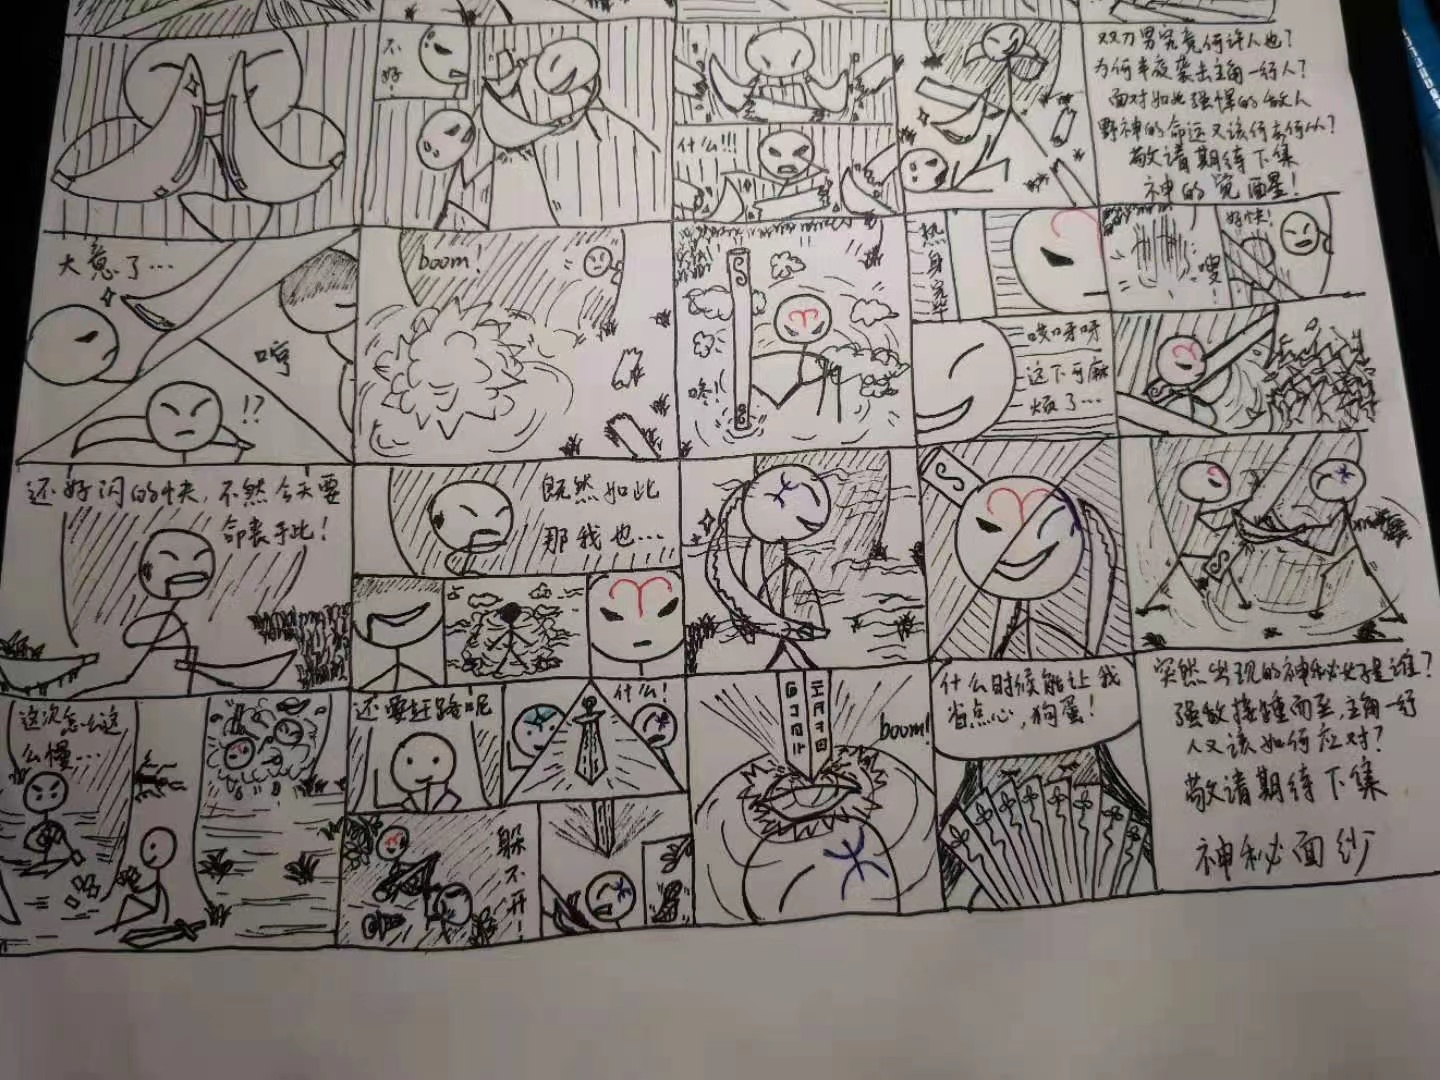 不
好!
什么!!!
双刀男究竟何许人也?
为何半夜袭击主角一行人?
面对如此强悍的敌人
野神的命运又该何去何从?
敬请期待下集
神的觉醒!
大意了...
哼
!?
boom!
咚!!
热
身
完
毕
哎呀呀
这下可麻
烦了...
好快!
嗖!
还好闪的快,不然今天要
命丧于此!
既然如此
那我也...
这次怎么这
么慢...
还要赶路呢
什么!
躲
不
开!
boom!
什么时候能让我
省点心,狗蛋!
突然出现的神秘女子是谁?
强敌接踵而至,主角一行
人又该如何应对?
敬请期待下集
神秘面纱